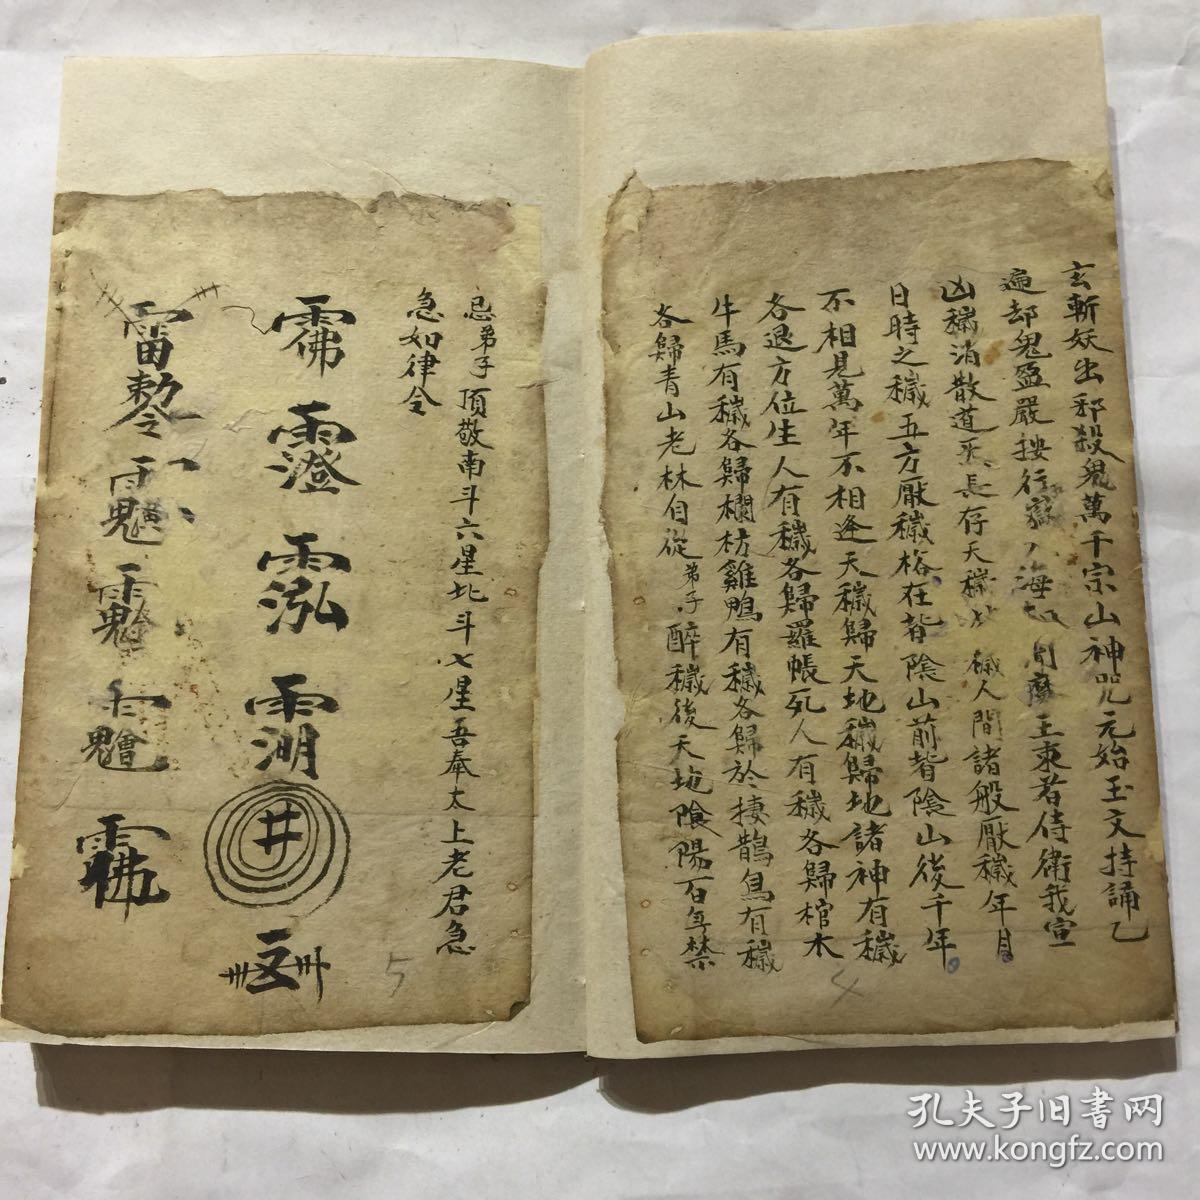 玄斬妖出邪殺鬼萬千宗山神咒元始玉文持誦乙
遍却鬼 嚴按行嶽 海 王束首侍衛我宣
凶穢消散道炁長存天穢 穢人間諸般厭穢年月
日時之穢五方厭穢 在背陰山前背陰山後千年
不相見萬年不相逢天穢歸天地穢歸地諸神有穢
各退方位生人有穢各歸羅帳死人有穢各歸棺木
牛馬有穢各歸欄枋雞鴨有穢各歸於棲鵲鳥有穢
各歸青山老林自從弟子醉穢後天地陰陽百年禁
忌弟子頂敬南斗六星北斗七星吾奉太上老君急
急如律令
井
5
4
孔夫子旧书网
www.kongfz.com